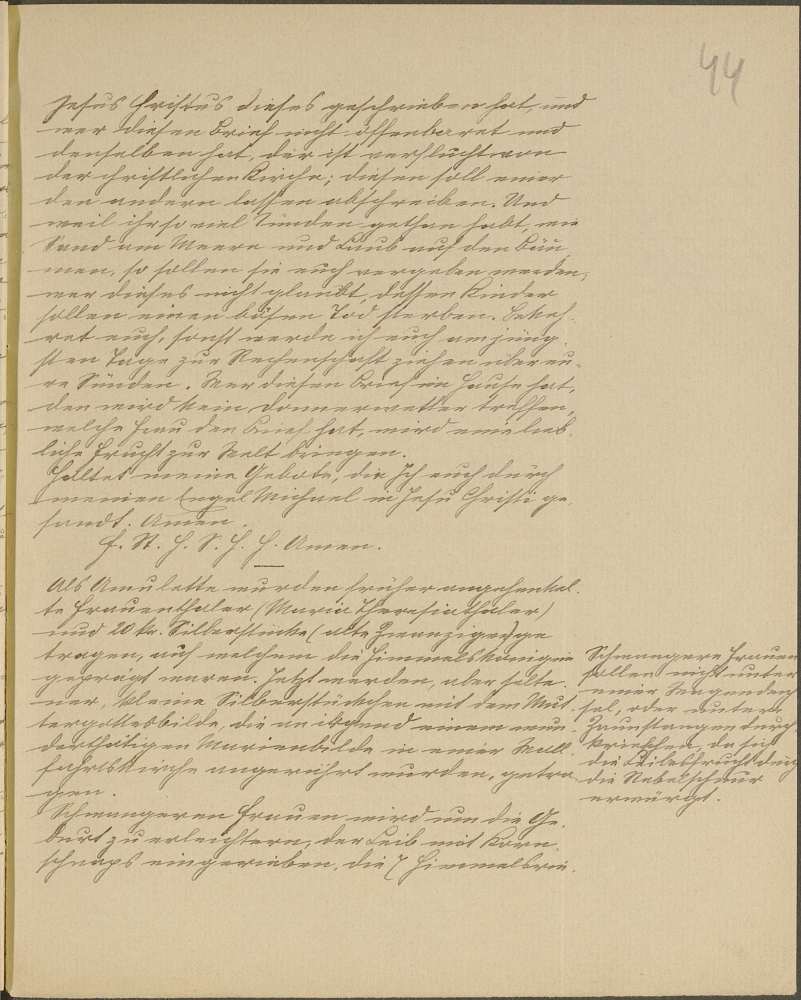 44
Jesus Christus dieses geschrieben hat, und
wer diesen Brief nicht offenbaret und
denselben hat, der ist verflucht von
der christlichen Kirche; diesen soll einer
den andern lassen abschreiben. Und
weil ihr so viel Sünden gethan habt, wie
Sand am Meere und Laub auf den Bäu
men, so sollen sie euch vergeben werden,
wer dieses nicht glaubt, dessen Kinder
sollen einen bösen Tod sterben. Bekeh
ret euch, sonst werde ich euch am jüng
sten Tage zur Rechenschaft ziehen über eu-
re Sünden. Wer diesen Brief im Hause hat,
den wird kein Donnerwetter treffen,
welche Frau den Brief hat, wird eine lieb
liche Frucht zur Welt bringen.
Haltet meine Gebote, die Ich euch durch
meinen Engel Michael in Jesu Christi ge
sandt. Amen.
H. H. Amen.
Als Amulette wurden früher angehenkel
te Frauenthaler (Maria Theresiathaler)
und 20 kr. Silberstücke (alte Zwanziger) ge
tragen, auf welchem die Himmelskönigin
geprägt waren. Jetzt werden, aber selte
ner, kleine Silberstückchen mit dem Mut
tergottesbilde, die an irgend einem wun
derthätigen Marienbilde in einer Wall
fahrtskirche angerührt wurden, getra
gen.
Schwangeren Frauen wird um die Ge
burt zu erleichtern, der Leib mit Korn
schnaps eingerieben, die 7 Himmelsrie
Schwangere Frauen
sollen nicht unter
einer Wagendeich
sel, oder unter
Zaunstangen durch
kriechen, da sich
die Leibesfrucht durch
die Nabelschnur
erwürgt.